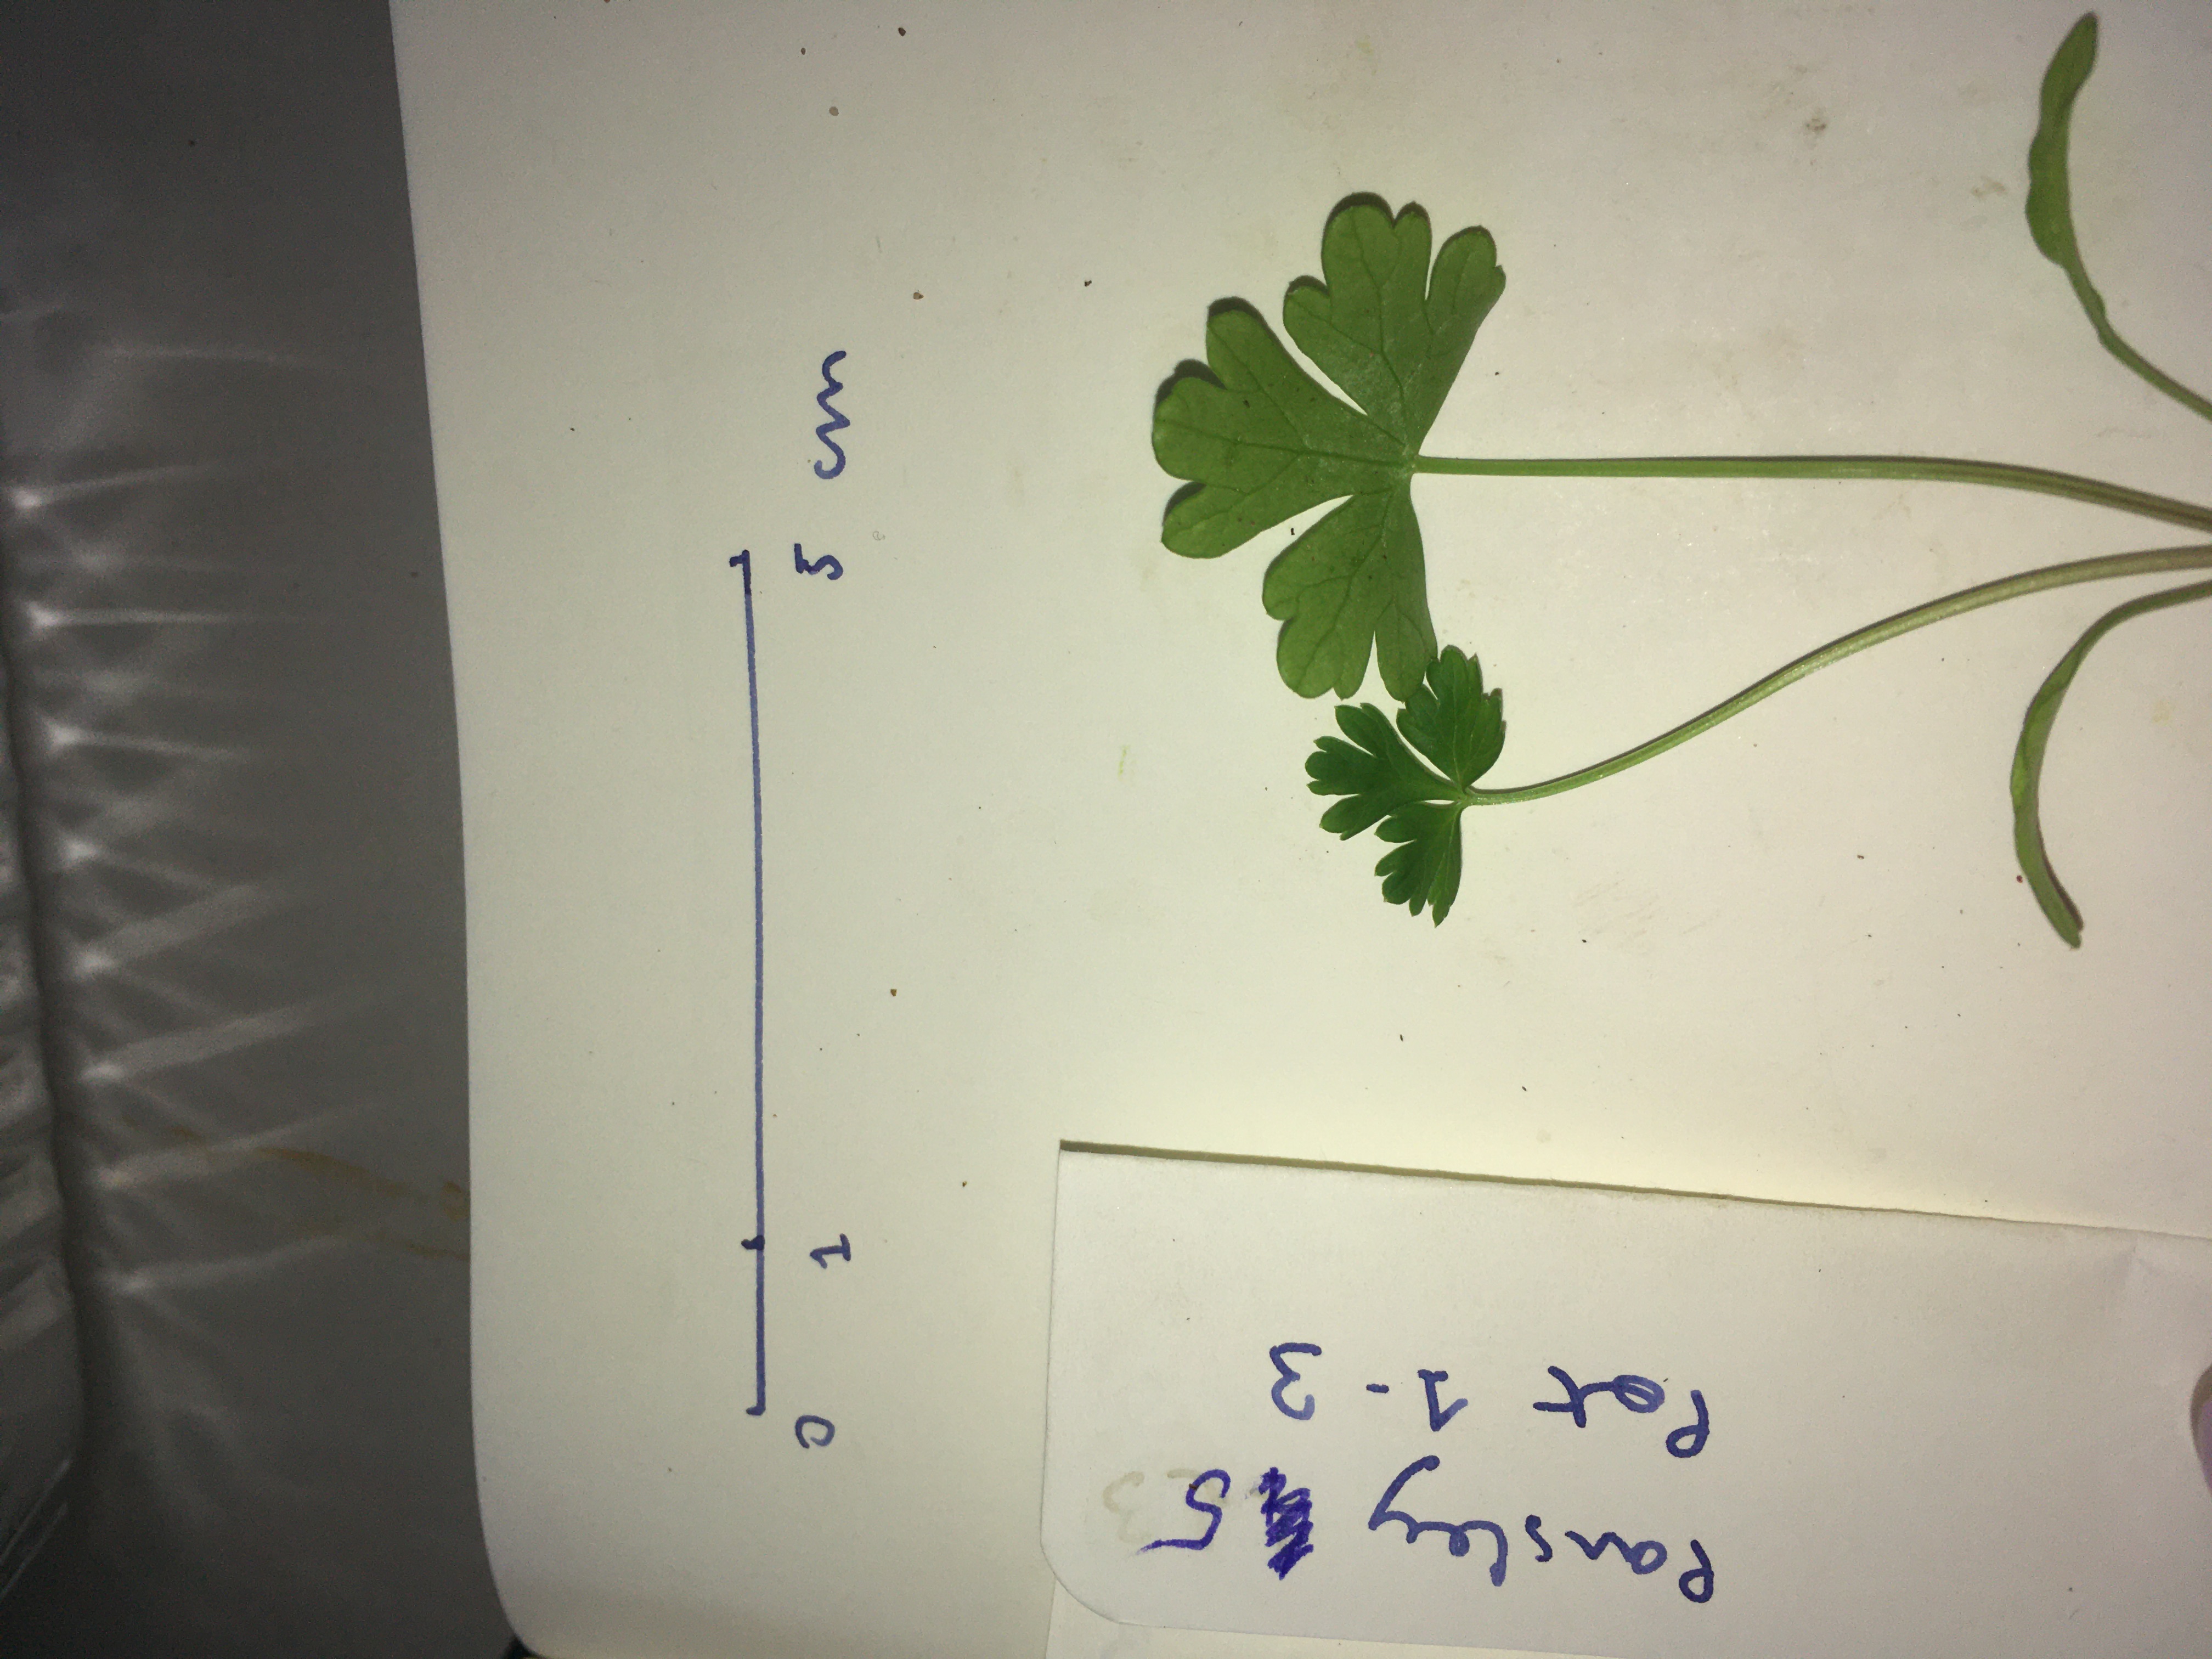 0 1 5 cm
Parsley 5
Pot 1-3